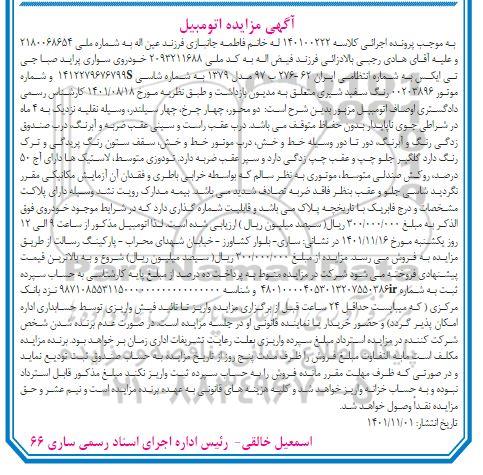 آگهی مزایده اتومبیل
به موجب پرونده اجرائی کلاسه ۱۴۰۱۰۰۲۲۲ له خانم فاطمه جانبازی فرزند عین اله به شماره ملی ۲۱۸۰۰۶۸۶۵۴
و علیه آقای هادی رجبی بالادزائی فرزند فیض اله به کد ملی ۲۰۹۳۲۱۱۶۸۸ خودروی سواری پراید صبا جی
تی ایکس به شماره انتظامی ایران ۶۲-۲۷۶ ب ۹۷ مدل ۱۳۷۹ به شماره شاسی S۱۴۱۲۲۷۹۶۷۶۷۹۹ و شماره
موتور ۰۰۲۰۳۸۹۶ رنگ سفید شیری متعلق به مدیون بازداشت و طبق نظریه مورخ ۱۴۰۱/۰۸/۱۸ کارشناس رسمی
دادگستری اوصاف اتومبیل مزبور بدین شرح است: دو محور، چهار چرخ، چهار سیلندر، وسیله نقلیه نزدیک به ۴ ماه
در شرایطی جوی ناپایدار بدون حفاظ متوقف می باشد. درب عقب راست و سینی عقب ضربه و آبرنگ، درب صندوق
زدگی رنگ و آبرنگ، دور تا دور وسیله خط و خش، درب موتور خط و خش، سقف ستون رنگ پریدگی و ترک
رنگ دارد گلگیر جلو چپ و عقب چپ زدگی دارد و سپر عقب ضربه دارد. تودوزی متوسط، لاستیک ها دارای آج ۵۰
درصد، روکش صندلی متوسط، موتوری به نظر سالم که بواسطه خرابی باطری و فقدان آن آزمایش مکانیکی مقرر
نگردید شاسی جلو و عقب بنظر فاقد ضربه تصادف شدید می باشد. بیمه مدارک رویت نشد وسیله دارای پلاکت
مشخصات و درج فابریک با تاریخچه پلاک می باشد و قابلیت شماره گذاری دارد که در شرایط موجود خودروی فوق
الذکر به مبلغ ۳۰۰/۰۰۰/۰۰۰ ریال( سیصد میلیون ریال ) ارزیابی شده است. لذا اتومبیل مذکور از ساعت ۹ الی ۱۲
روز یکشنبه مورخ ۱۴۰۱/۱۱/۱۶ در نشانی: ساری- بلوار کشاورز - خیابان شهدای محراب - پارکینگ رسالت از طریق
مزایده به فروش می رسد. مزایده از مبلغ ۳۰۰/۰۰۰/۰۰۰ ریال( سیصد میلیون ریال) شروع و به بالاترین قیمت
پیشنهادی فروخته می شود شرکت در مزایده منوط به پرداخت ده درصد از مبلغ پایه کارشناسی به حساب سپرده
ثبت به شماره ir
مرکزی ( که میبایست حداقل ۲۴ ساعت قبل از برگزاری مزایده واریز تا تائید فیش واریزی توسط حسابداری اداره
امکان پذیر گردد) و حضور خریدار یا نماینده قانونی او در جلسه مزایده است، در صورت عدم برنده شدن شخص
شرکت کننده در مزایده استرداد مبلغ سپرده واریزی بعلت رعایت تشریفات اداری زمان بر خواهد بود. برنده مزایده
مکلف است مابه التفاوت مبلغ فروش را ظرف مدت پنج روز از تاریخ مزایده به حساب صندوق ثبت تودیع نماید
و در صورتی که ظرف مهلت مقرر مانده فروش را به حساب سپرده ثبت واریز نکند مبلغ مذکور قابل استرداد
نبوده و به حساب خزانه واریز خواهد شد و کلیه هزینه های قانونی به عهده برنده مزایده است و نیم عشر و حق
مزایده نقداً وصول خواهد شد.
تاریخ انتشار: ۱۴۰۱/۱۱/۰۱
اسمعیل خالقی- رئیس اداره اجرای اسناد رسمی ساری ۶۶